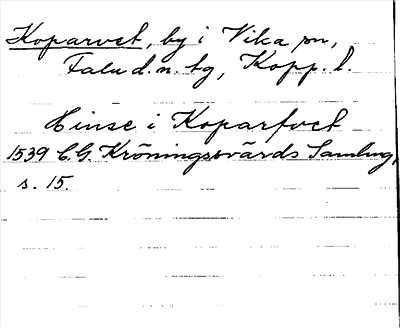 Koparvet, by i Vika sn,
Falu d. n. tg, Kopp. l.
Hinse i Koparfvet
1539 C. G. Kröningssvärds Samling,
s. 15.